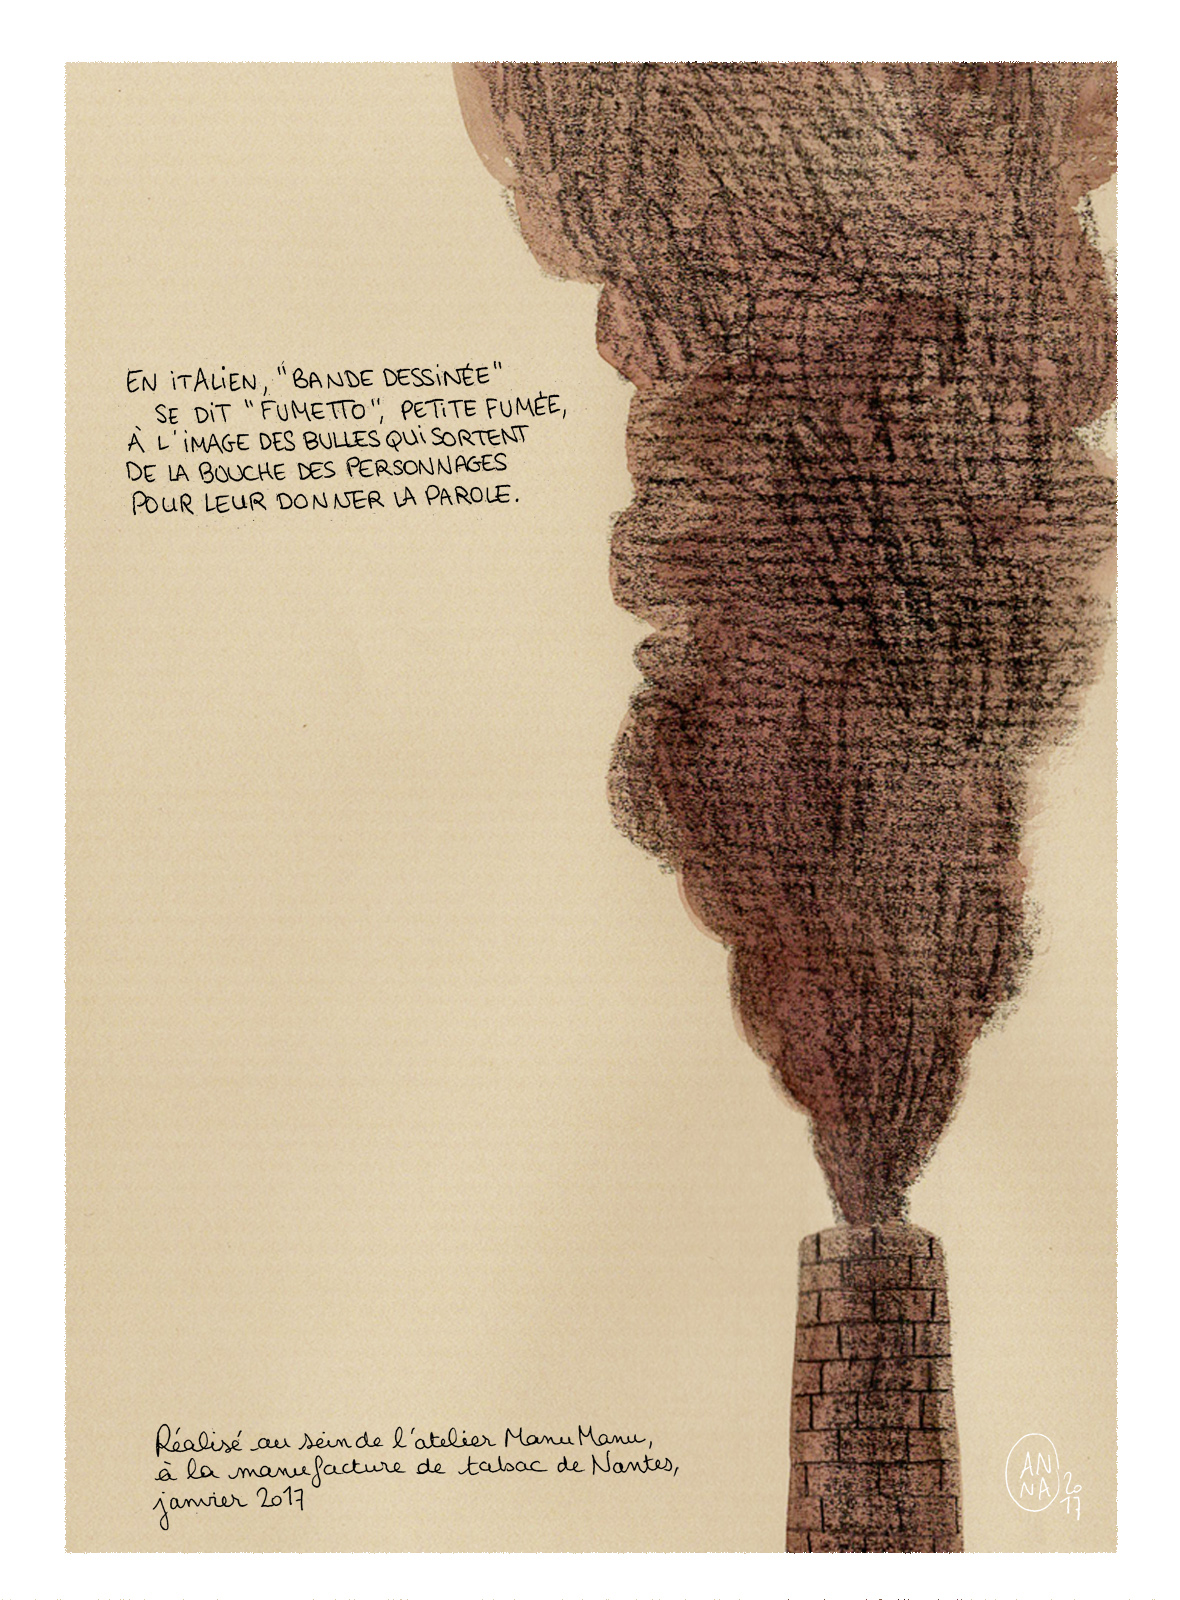 EN iTALiEN, "BANDE DESSiNÉE"
SE DiT "FUMETTO", PETiTE FUMÉE,
À L'iMAGE DES BULLES QUi SORTENT
DE LA BOUCHE DES PERSONNAGES
POUR LEUR DONNER LA PAROLE.
Réalisé au sein de l'atelier Manu Manu,
à la manufacture de tabac de Nantes,
janvier 2017
AN
NA
20
17